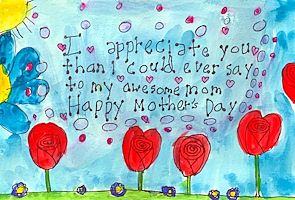 I appreciate you
than I could ever say
to my awesome mom
Happy Mother's Day